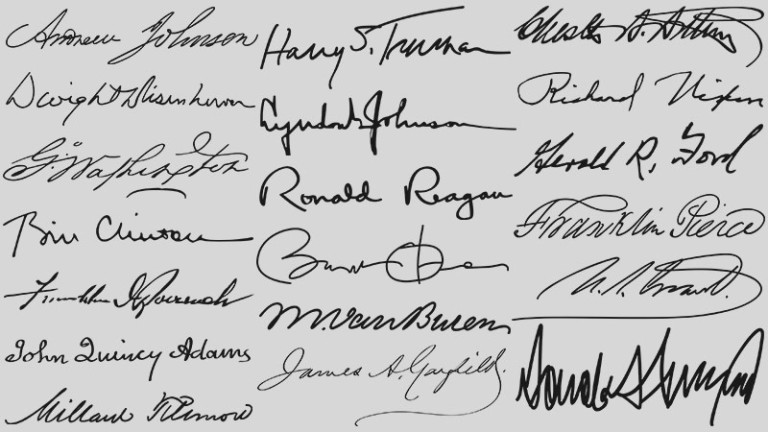 Andrew Johnson
Dwight D Eisenhower
G. Washington
Bill Clinton
Franklin D Roosevelt
John Quincy Adams
Millard Fillmore
Harry S. Truman
Lyndon B Johnson
Ronald Reagan
Barack Obama
M. Van Buren
James A. Garfield.
Chester A. Arthur
Richard Nixon
Gerald R. Ford
Franklin Pierce
U. S. Grant.
Donald J Trump